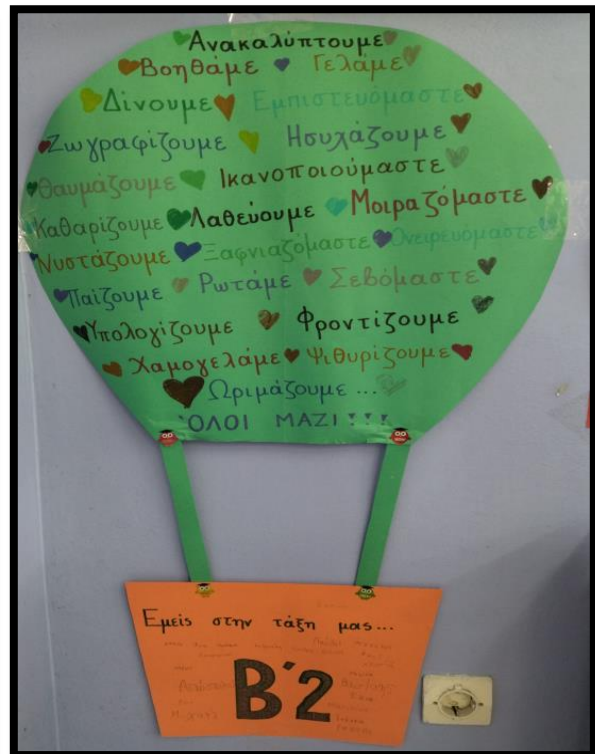 Ανακαλύπτουμε
Βοηθάμε Γελάμε
Δίνουμε Εμπιστευόμαστε
Ζωγραφίζουμε Ησυχάζουμε
Θαυμάζουμε Ικανοποιούμαστε
Καθαρίζουμε Λαθεύουμε Μοιραζόμαστε
Νυστάζουμε Ξαφνιαζόμαστε Ονειρευόμαστε
Παίζουμε Ρωτάμε Σεβόμαστε
Υπολογίζουμε Φροντίζουμε
Χαμογελάμε Ψιθυρίζουμε
Ωριμάζουμε...
ΌΛΟΙ ΜΑΖΙ!!!
Εμείς στην τάξη μας...
Β΄2